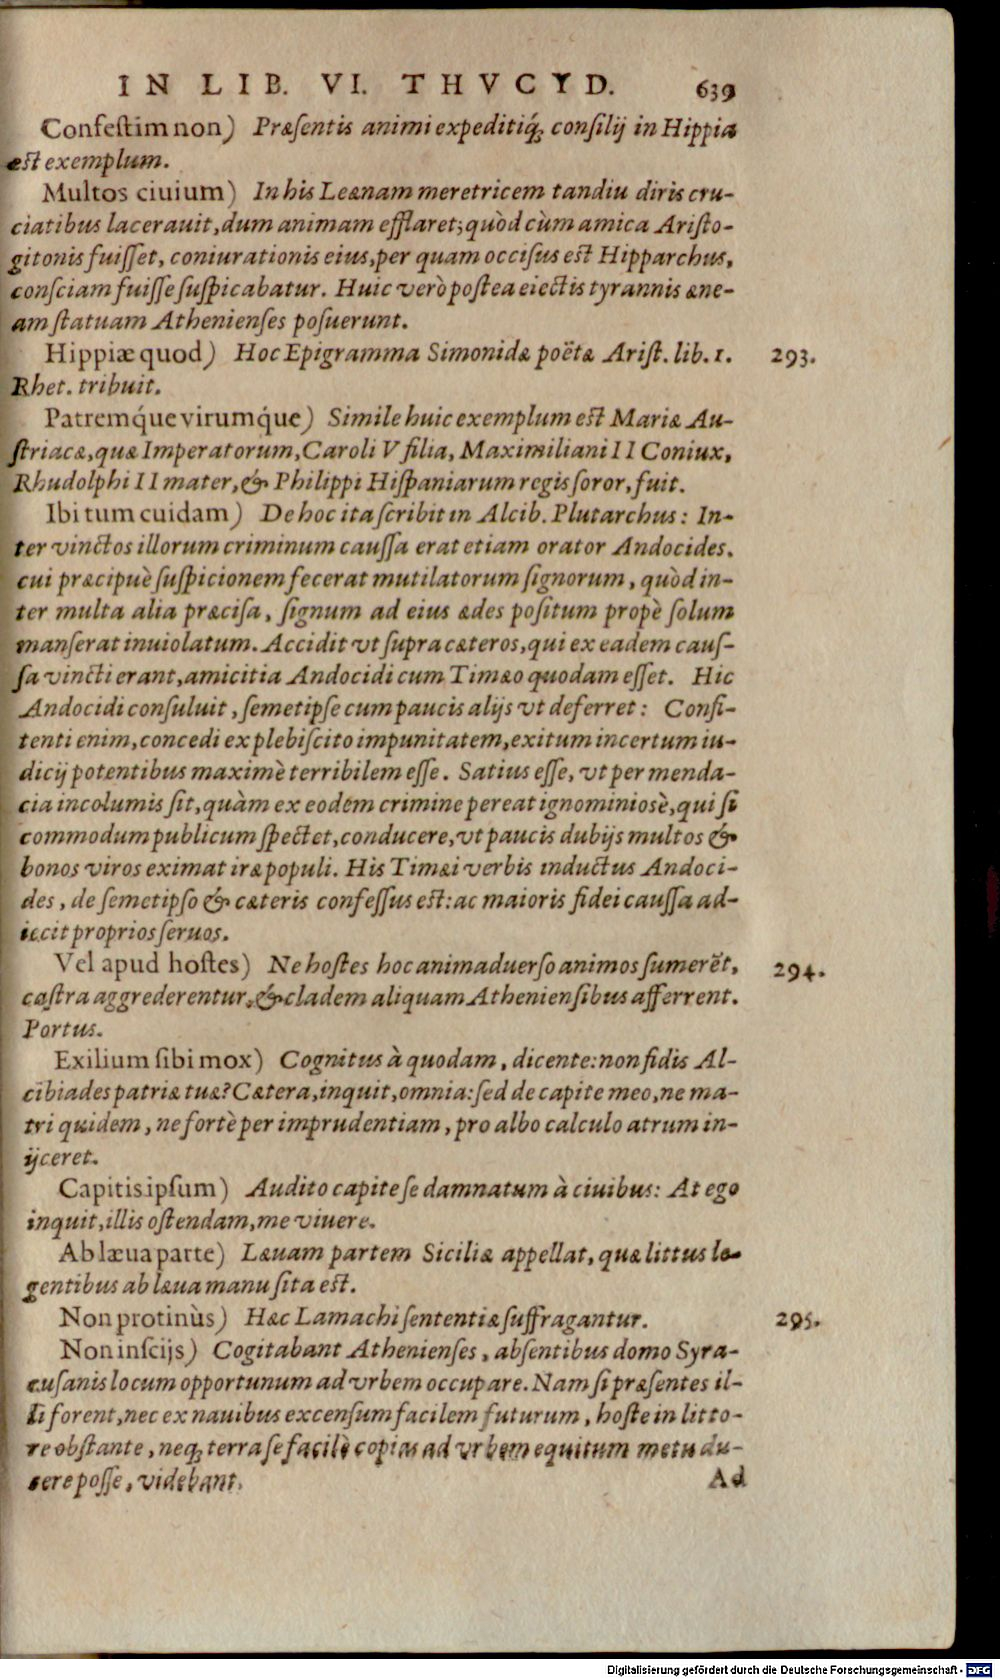 IN LIB. VI. THVCYD. 639
Confestim non) Præsentis animi expeditiq́; consilij in Hippia
est exemplum.
Multos ciuium) In his Leænam meretricem tandiu diris cru-
ciatibus lacerauit, dum animam efflaret; quòd cùm amica Aristo-
gitonis fuisset, coniurationis eius, per quam occisus est Hipparchus,
consciam fuisse suspicabatur. Huic verò postea eiectis tyrannis æne-
am statuam Athenienses posuerunt.
Hippiæ quod) Hoc Epigramma Simonidæ poëtæ Arist. lib. 1. 293.
Rhet. tribuit.
Patremq́ue virumq́ue) Simile huic exemplum est Mariæ Au-
striacæ, quæ Imperatorum, Caroli V filia, Maximiliani II Coniux,
Rhudolphi II mater, & Philippi Hispaniarum regis soror, fuit.
Ibi tum cuidam) De hoc ita scribit in Alcib. Plutarchus: In-
ter vinctos illorum criminum caussa erat etiam orator Andocides.
cui præcipuè suspicionem fecerat mutilatorum signorum, quòd in-
ter multa alia præcisa, signum ad eius ædes positum propè solum
manserat inuiolatum. Accidit vt supra cæteros, qui ex eadem caus-
sa vincti erant, amicitia Andocidi cum Timæo quodam esset. Hic
Andocidi consuluit, semetipse cum paucis alijs vt deferret: Confi-
tenti enim, concedi ex plebiscito impunitatem, exitum incertum iu-
dicij potentibus maximè terribilem esse. Satius esse, vt per menda-
cia incolumis sit, quàm ex eodem crimine pereat ignominiosè, qui si
commodum publicum spectet, conducere, vt paucis dubijs multos &
bonos viros eximat iræ populi. His Timæi verbis inductus Andoci-
des, de semetipso & cæteris confessus est: ac maioris fidei caussa ad-
iecit proprios seruos.
Vel apud hostes) Ne hostes hoc animaduerso animos sumerēt, 294.
castra aggrederentur, & cladem aliquam Atheniensibus afferrent.
Portus.
Exilium sibi mox) Cognitus à quodam, dicente: non fidis Al-
cibiades patriæ tuæ? Cætera, inquit, omnia: sed de capite meo, ne ma-
tri quidem, ne fortè per imprudentiam, pro albo calculo atrum in-
ijceret.
Capitis ipsum) Audito capite se damnatum à ciuibus: At ego
inquit, illis ostendam, me viuere.
Ab læua parte) Læuam partem Siciliæ appellat, quæ littus le-
gentibus ab læua manu sita est.
Non protinùs) Hæc Lamachi sententiæ suffragantur. 295.
Non inscijs) Cogitabant Athenienses, absentibus domo Syra-
cusanis locum opportunum ad vrbem occupare. Nam si præsentes il-
li forent, nec ex nauibus excensum facilem futurum, hoste in litto-
re obstante, neq; terra se facilè copias ad vrbem equitum metu du-
cere posse, videbant.
Ad
Digitalisierung gefördert durch die Deutsche Forschungsgemeinschaft - DFG